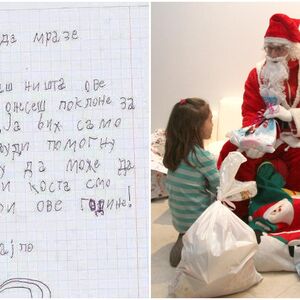 да мразе
аш ништа ове
онсеш поклоне за
ја бих само
уди помогну
у да може да
и коста смо
ри ове године!
ај по